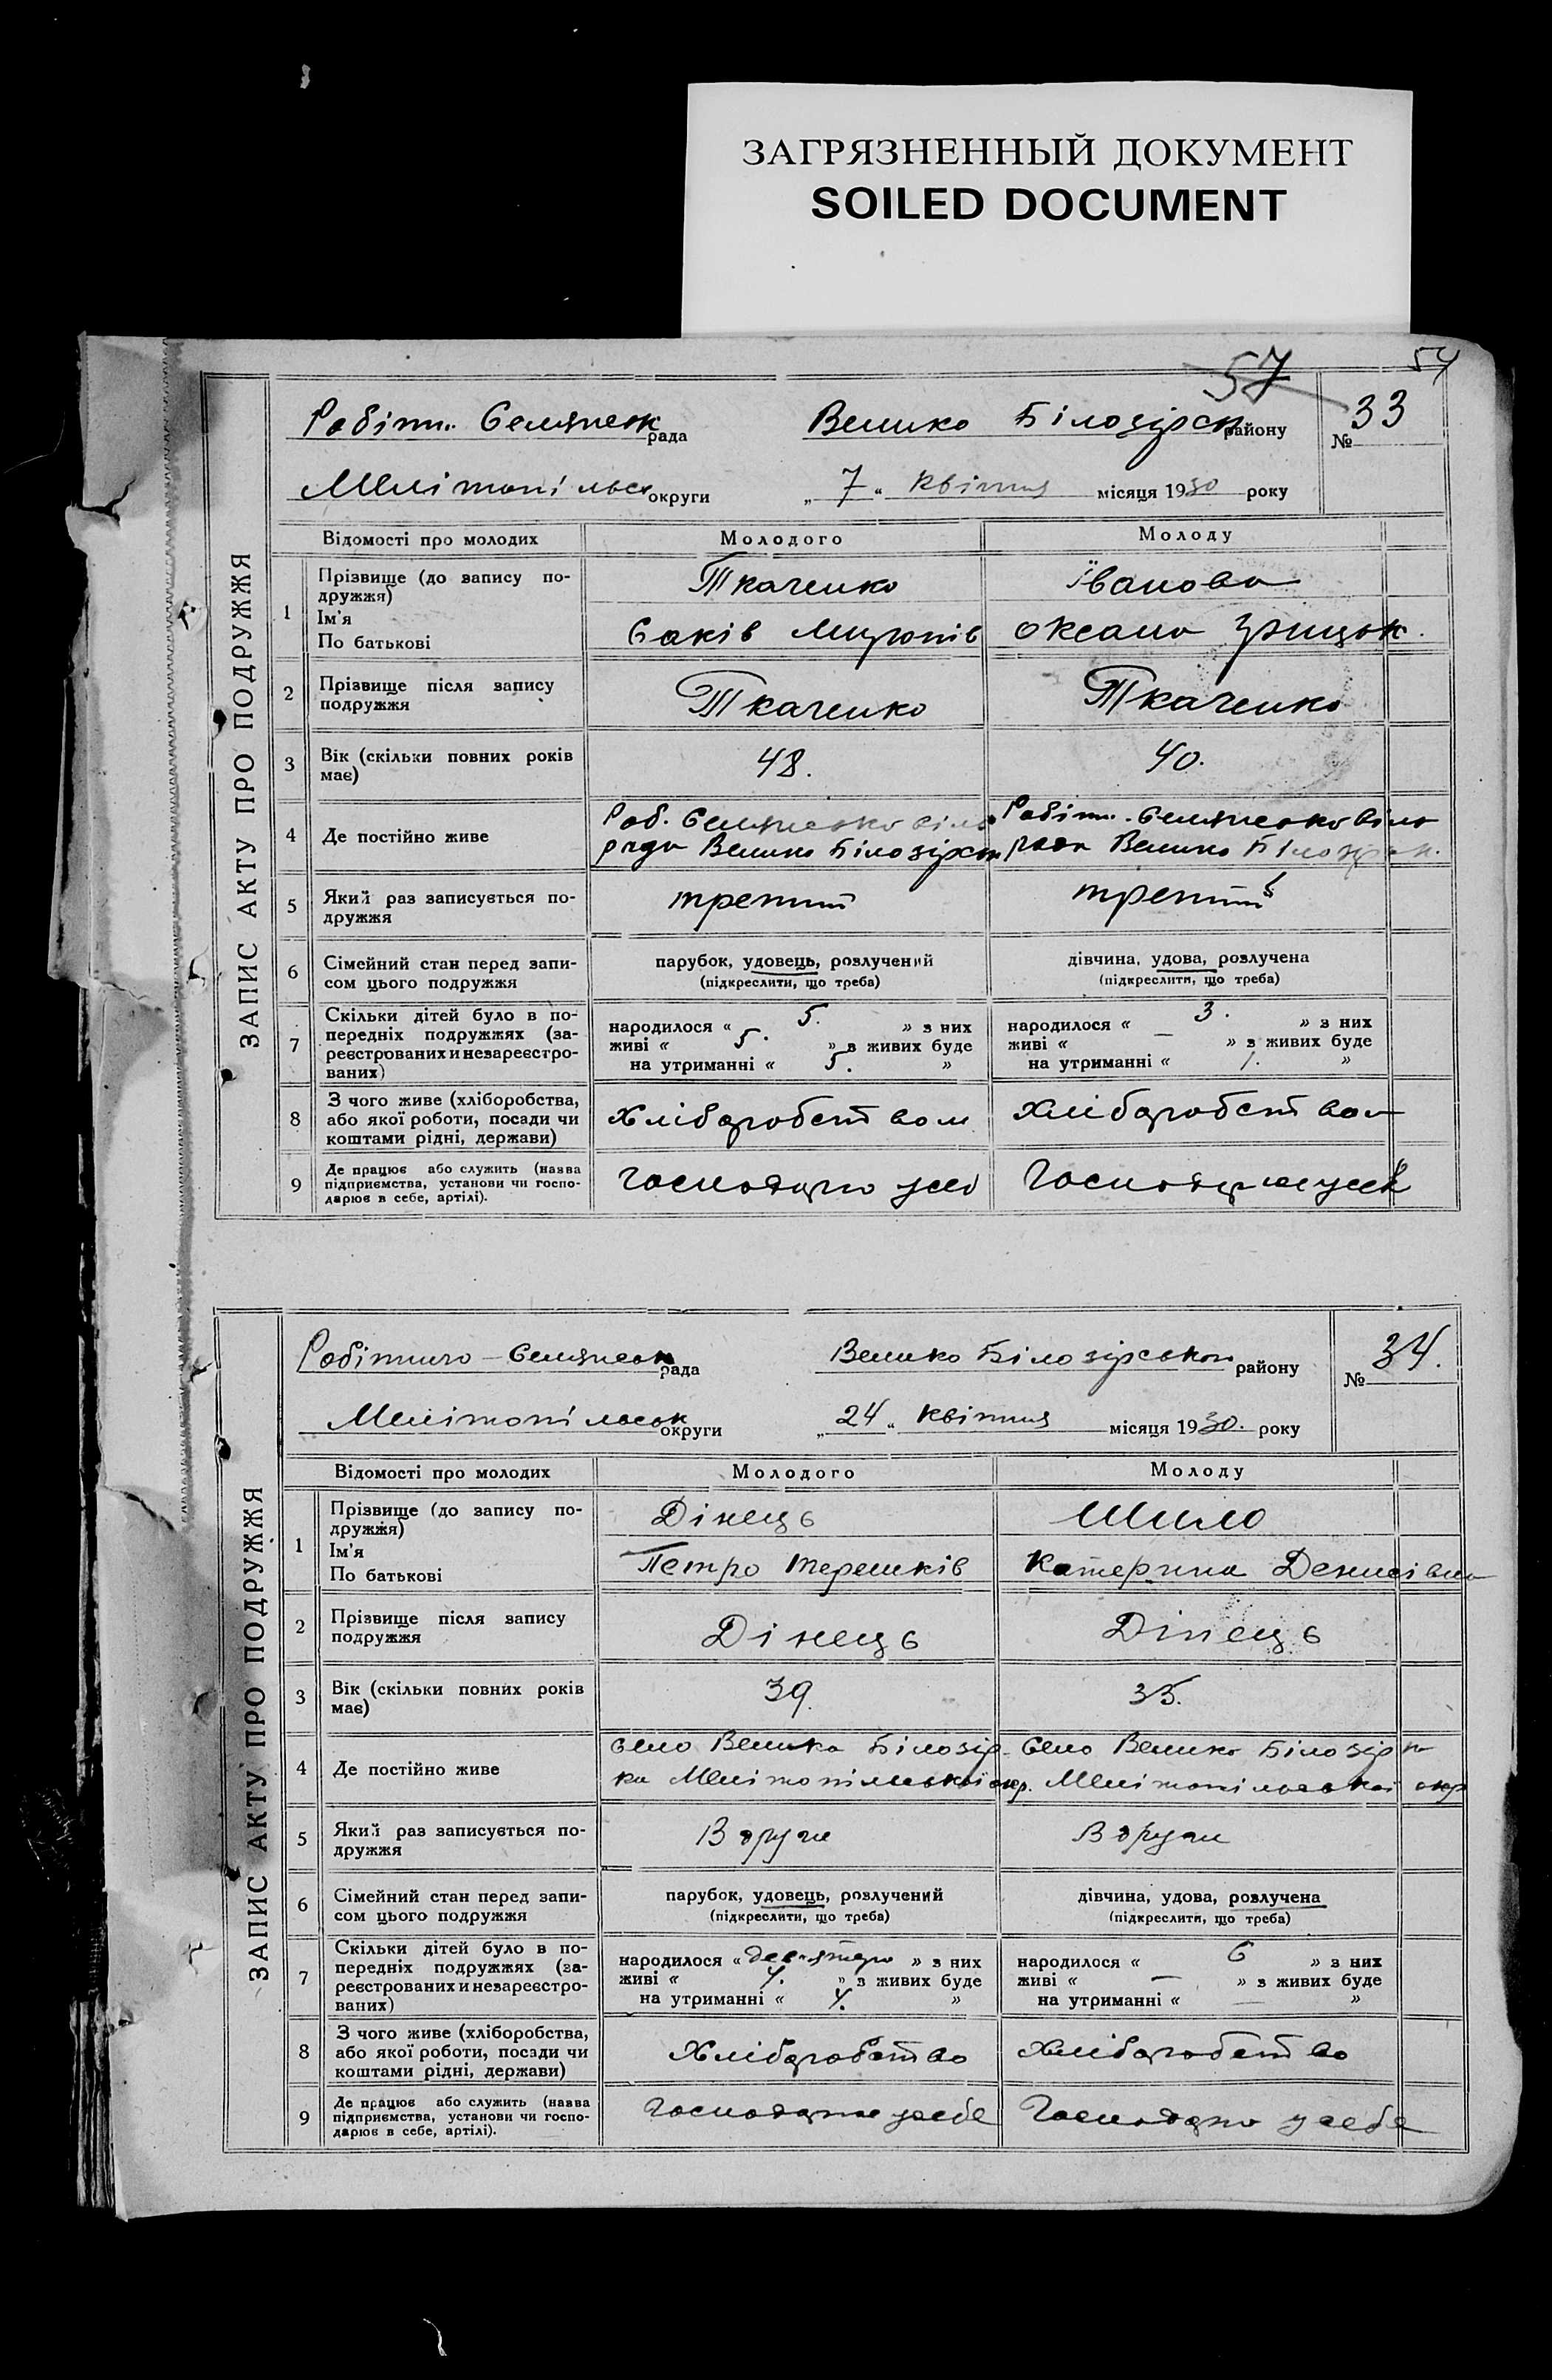 ЗАГРЯЗНЕННЫЙ ДОКУМЕНТ
SOILED DOCUMENT
57
54
ЗАПИС АКТУ ПРО ПОДРУЖЖЯ
Робітн. Селянськ рада Велико Білозірск району № 33
Мелітопільск округи „7“ квітня місяця 1930 року
Відомості про молодих Молодого Молоду
1 Прізвище (до запису по-
дружжя) Ткаченко Іванова
Ім'я
По батькові Яків Миронів Оксана Грицьк.
2 Прізвище після запису
подружжя Ткаченко Ткаченко
3 Вік (скільки повних років
має) 48. 40.
4 Де постійно живе
Роб. Селянсько сіль Робітн. Селянсько сіль
рада Велико Білозірск рада Велико Білозірск.
5 Який раз записується по-
дружжя третий третий
6 Сімейний стан перед запи-
сом цього подружжя
парубок, удовець, розлучений дівчина, удова, розлучена
(підкреслити, що треба) (підкреслити, що треба)
7 Скільки дітей було в по-
передніх подружжях (за-
реєстрованих и незареєстро-
ваних)
народилося « 5. » з них народилося « 3. » з них
живі « 5. » з живих буде живі « — » з живих буде
на утриманні « 5. » на утриманні « 1. »
8 З чого живе (хліборобства,
або якої роботи, посади чи
коштами рідні, держави)
Хліборобством Хліборобством
9 Де працює або служить (назва
підприємства, установи чи госпо-
дарює в себе, артілі).
ЗАПИС АКТУ ПРО ПОДРУЖЖЯ
Робітничо-Селянськ рада Велико Білозірськ району № 34.
Мелітопільськ округи „24“ квітня місяця 1930. року
Відомості про молодих Молодого Молоду
1 Прізвище (до запису по-
дружжя) Дінець Шило
Ім'я
По батькові Петро Терешків Катерина Денисівна
2 Прізвище після запису
подружжя Дінець Дінець
3 Вік (скільки повних років
має) 39. 35.
4 Де постійно живе
Село Велика Білозір- Село Велика Білозірк
ка Мелітопільської окр. Мелітопільської окр
5 Який раз записується по-
дружжя Вдруге Вдруге
6 Сімейний стан перед запи-
сом цього подружжя
парубок, удовець, розлучений дівчина, удова, розлучена
(підкреслити, що треба) (підкреслити, що треба)
7 Скільки дітей було в по-
передніх подружжях (за-
реєстрованих и незареєстро-
ваних)
народилося « девятеро » з них народилося « 6 » з них
живі « 4. » з живих буде живі « — » з живих буде
на утриманні « 4. » на утриманні « — »
8 З чого живе (хліборобства,
або якої роботи, посади чи
коштами рідні, держави)
Хліборобство Хліборобство
9 Де працює або служить (назва
підприємства, установи чи госпо-
дарює в себе, артілі).
усебе усебе